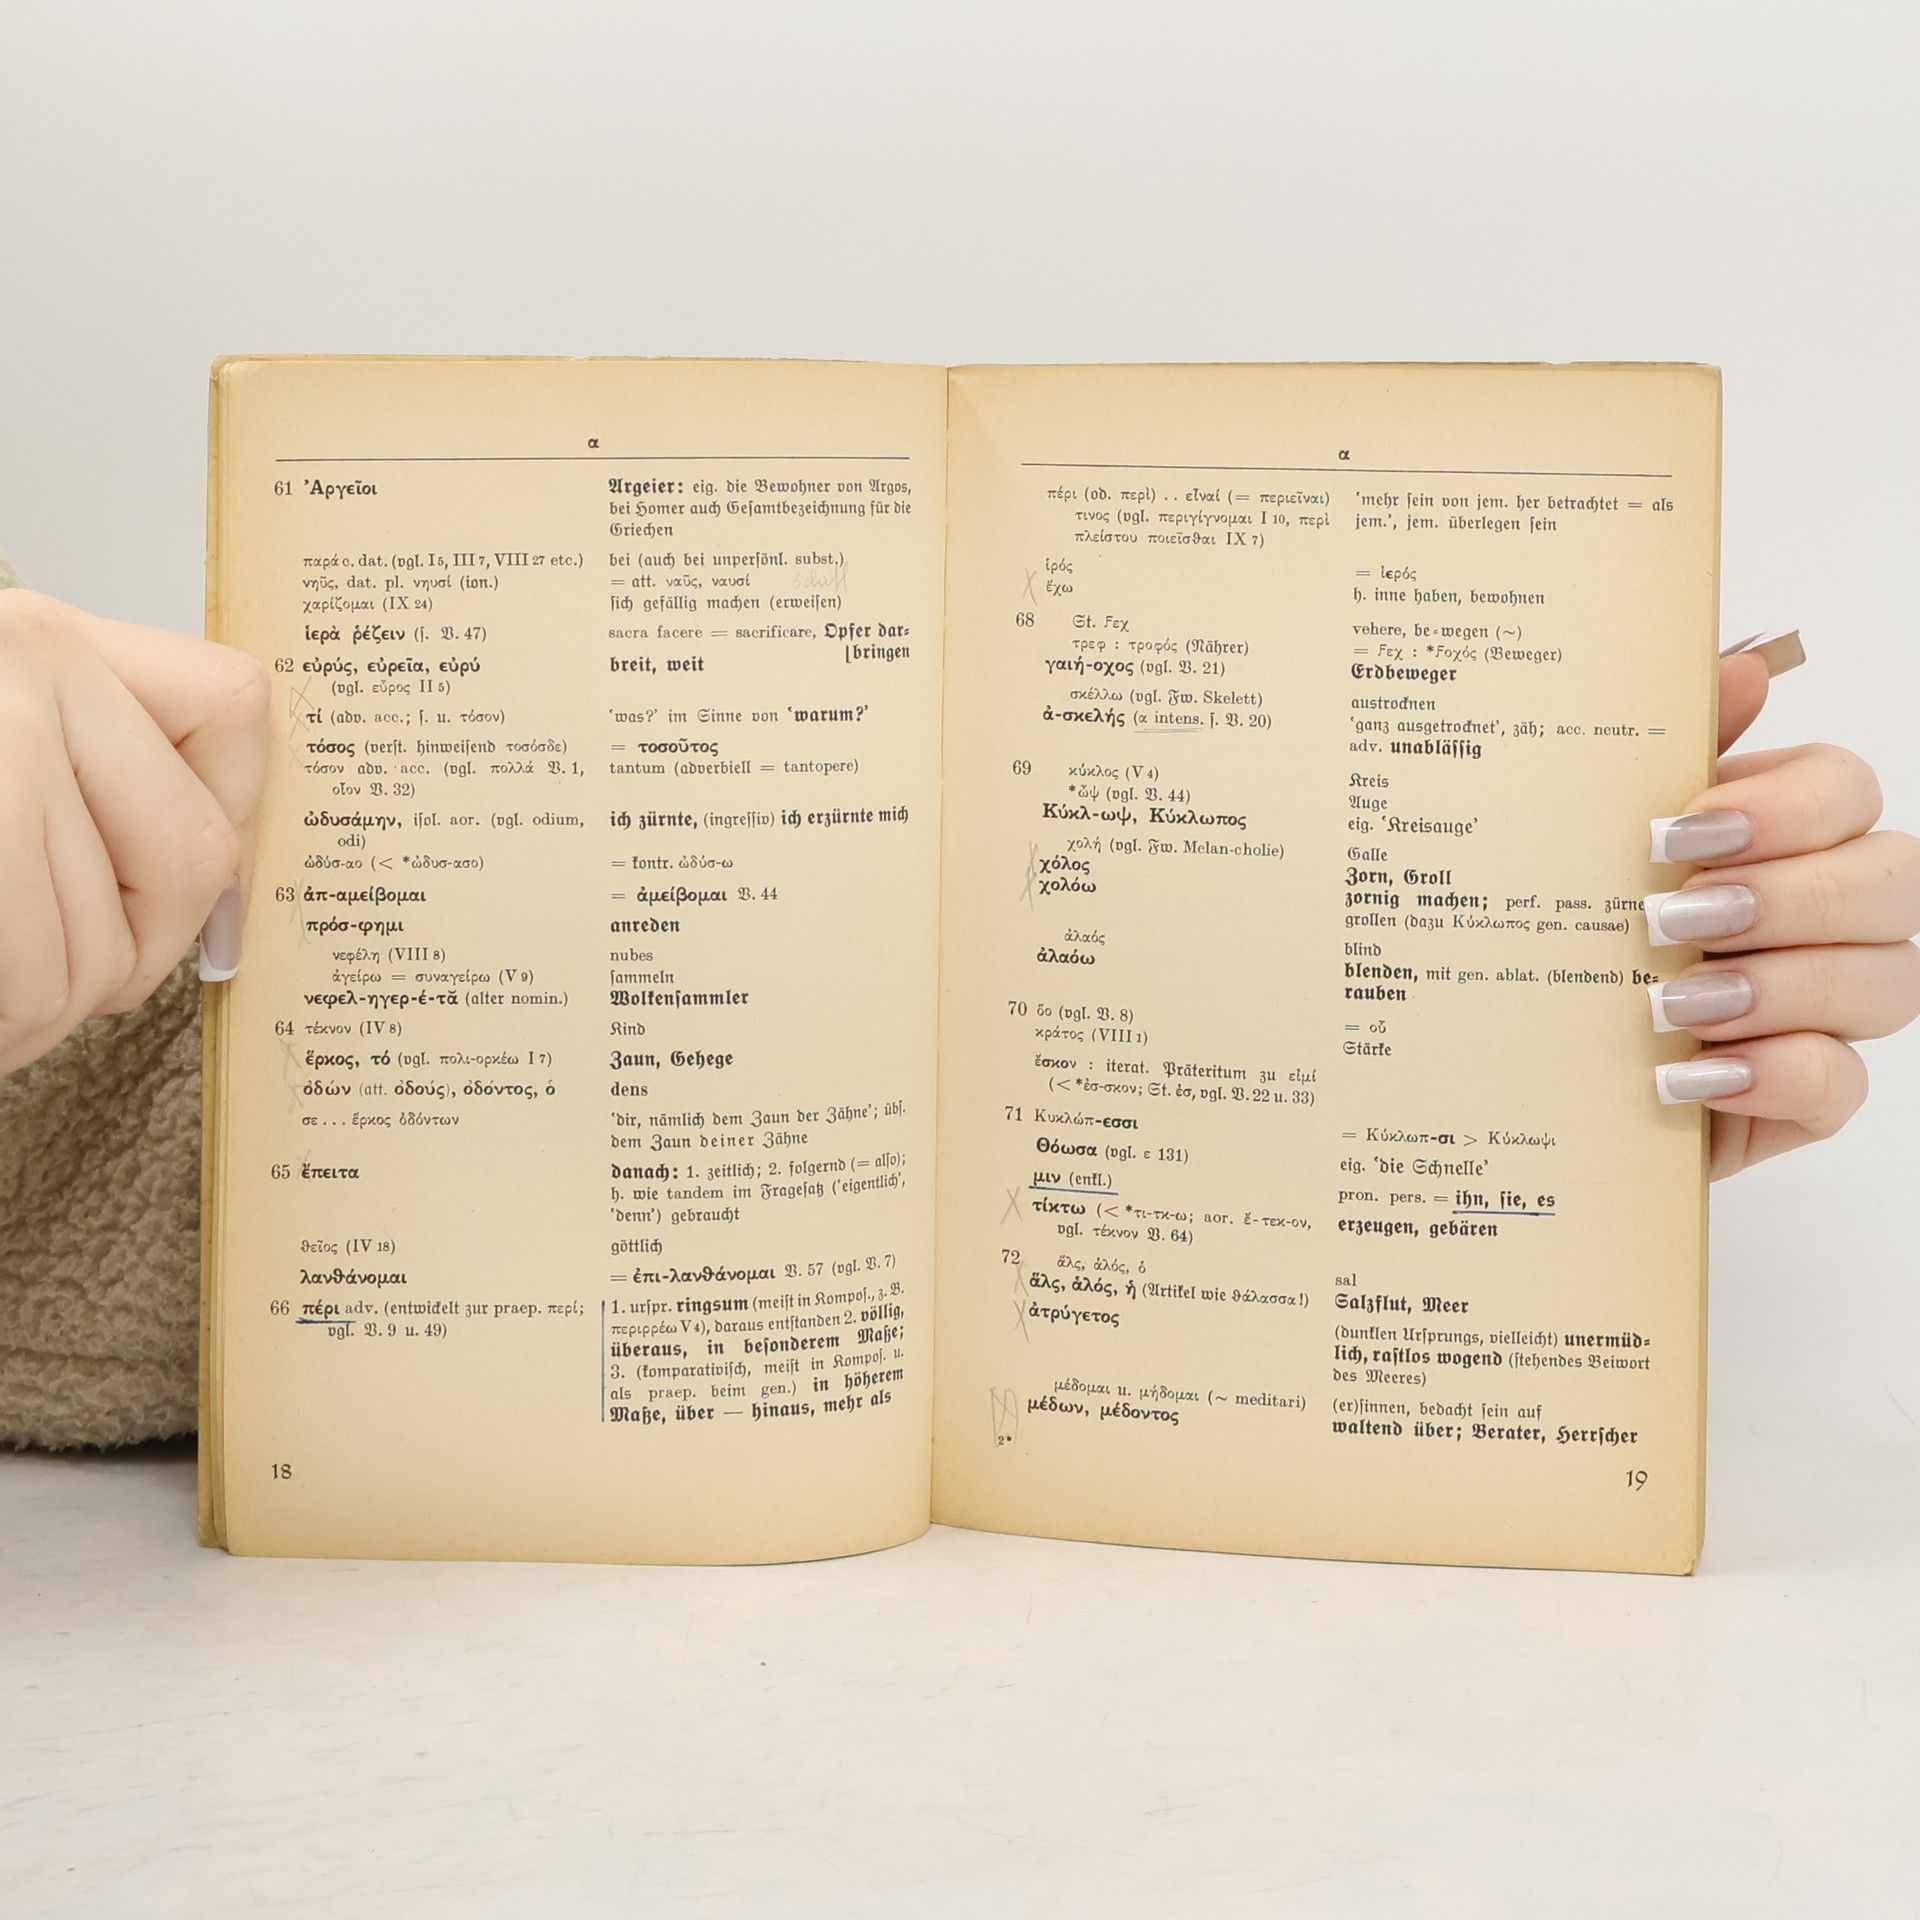 α
61 Ἀργεῖοι Argeier: eig. die Bewohner von Argos,
bei Homer auch Gesamtbezeichnung für die
Griechen
παρά c. dat. (vgl. I 5, III 7, VIII 27 etc.) bei (auch bei unpersönl. subst.)
νηῦς, dat. pl. νηυσί (ion.) = att. ναῦς, ναυσί
χαρίζομαι (IX 24) sich gefällig machen (erweisen)
ἱερὰ ῥέζειν (s. V. 47) sacra facere = sacrificare, Opfer dar-
⌊bringen
62 εὐρύς, εὐρεῖα, εὐρύ breit, weit
(vgl. εὖρος II 5)
τί (adv. acc.; s. u. τόσον) ‘was?’ im Sinne von ‘warum?’
τόσος (verst. hinweisend τοσόσδε) = τοσοῦτος
τόσον adv. acc. (vgl. πολλά V. 1, tantum (adverbiell = tantopere)
οἷον V. 32)
ὠδυσάμην, isol. aor. (vgl. odium, ich zürnte, (ingressiv) ich erzürnte mich
odi)
ὠδύσ-αο (< *ὠδυσ-ασο) = kontr. ὠδύσ-ω
63 ἀπ-αμείβομαι = ἀμείβομαι V. 44
πρόσ-φημι anreden
νεφέλη (VIII 8) nubes
ἀγείρω = συναγείρω (V 9) sammeln
νεφελ-ηγερ-έ-τᾰ (alter nomin.) Wolkensammler
64 τέκνον (IV 8) Kind
ἕρκος, τό (vgl. πολι-ορκέω I 7) Zaun, Gehege
ὀδών (att. ὀδούς), ὀδόντος, ὁ dens
σε . . . ἕρκος ὀδόντων ‘dir, nämlich dem Zaun der Zähne’; übs.
dem Zaun deiner Zähne
65 ἔπειτα danach: 1. zeitlich; 2. folgernd (= also);
h. wie tandem im Fragesatz (‘eigentlich’,
‘denn’) gebraucht
θεῖος (IV 18) göttlich
λανθάνομαι = ἐπι-λανθάνομαι V. 57 (vgl. V. 7)
66 πέρι adv. (entwickelt zur praep. περί; 1. urspr. ringsum (meist in Kompos., z. B.
vgl. V. 9 u. 49) περιρρέω V 4), daraus entstanden 2. völlig,
überaus, in besonderem Maße;
3. (komparativisch, meist in Kompos. u.
als praep. beim gen.) in höherem
Maße, über — hinaus, mehr als
18
α
πέρι (od. περὶ) . . εἶναί (= περιεῖναι) ‘mehr sein von jem. her betrachtet = als
τινος (vgl. περιγίγνομαι I 10, περὶ jem.’, jem. überlegen sein
πλείστου ποιεῖσθαι IX 7)
ἱρός = ἱερός
ἔχω h. inne haben, bewohnen
68 St. ϝεχ vehere, be-wegen (~)
τρεφ : τροφός (Nährer) = ϝεχ : *ϝοχός (Beweger)
γαιή-οχος (vgl. V. 21) Erdbeweger
σκέλλω (vgl. Fw. Skelett) austrocknen
ἀ-σκελής (α intens. s. V. 20) ‘ganz ausgetrocknet’, zäh; acc. neutr. =
adv. unablässig
69 κύκλος (V 4) Kreis
*ὤψ (vgl. V. 44) Auge
Κύκλ-ωψ, Κύκλωπος eig. ‘Kreisauge’
χολή (vgl. Fw. Melan-cholie) Galle
χόλος Zorn, Groll
χολόω zornig machen; perf. pass. zürne
grollen (dazu Κύκλωπος gen. causae)
ἀλαός blind
ἀλαόω blenden, mit gen. ablat. (blendend) be-
rauben
70 ὅο (vgl. V. 8) = οὗ
κράτος (VIII 1) Stärke
ἔσκον : iterat. Präteritum zu εἰμί
(< *ἐσ-σκον; St. ἐσ, vgl. V. 22 u. 33)
71 Κυκλώπ-εσσι = Κύκλωπ-σι > Κύκλωψι
Θόωσα (vgl. ε 131) eig. ‘die Schnelle’
μιν (enkl.) pron. pers. = ihn, sie, es
τίκτω (< *τι-τκ-ω; aor. ἔ-τεκ-ον, erzeugen, gebären
vgl. τέκνον V. 64)
72 ἅλς, ἁλός, ὁ sal
ἅλς, ἁλός, ἡ (Artikel wie θάλασσα!) Salzflut, Meer
ἀτρύγετος (dunklen Ursprungs, vielleicht) unermüd-
lich, rastlos wogend (stehendes Beiwort
des Meeres)
μέδομαι u. μήδομαι (~ meditari) (er)sinnen, bedacht sein auf
μέδων, μέδοντος waltend über; Berater, Herrscher
2*
19